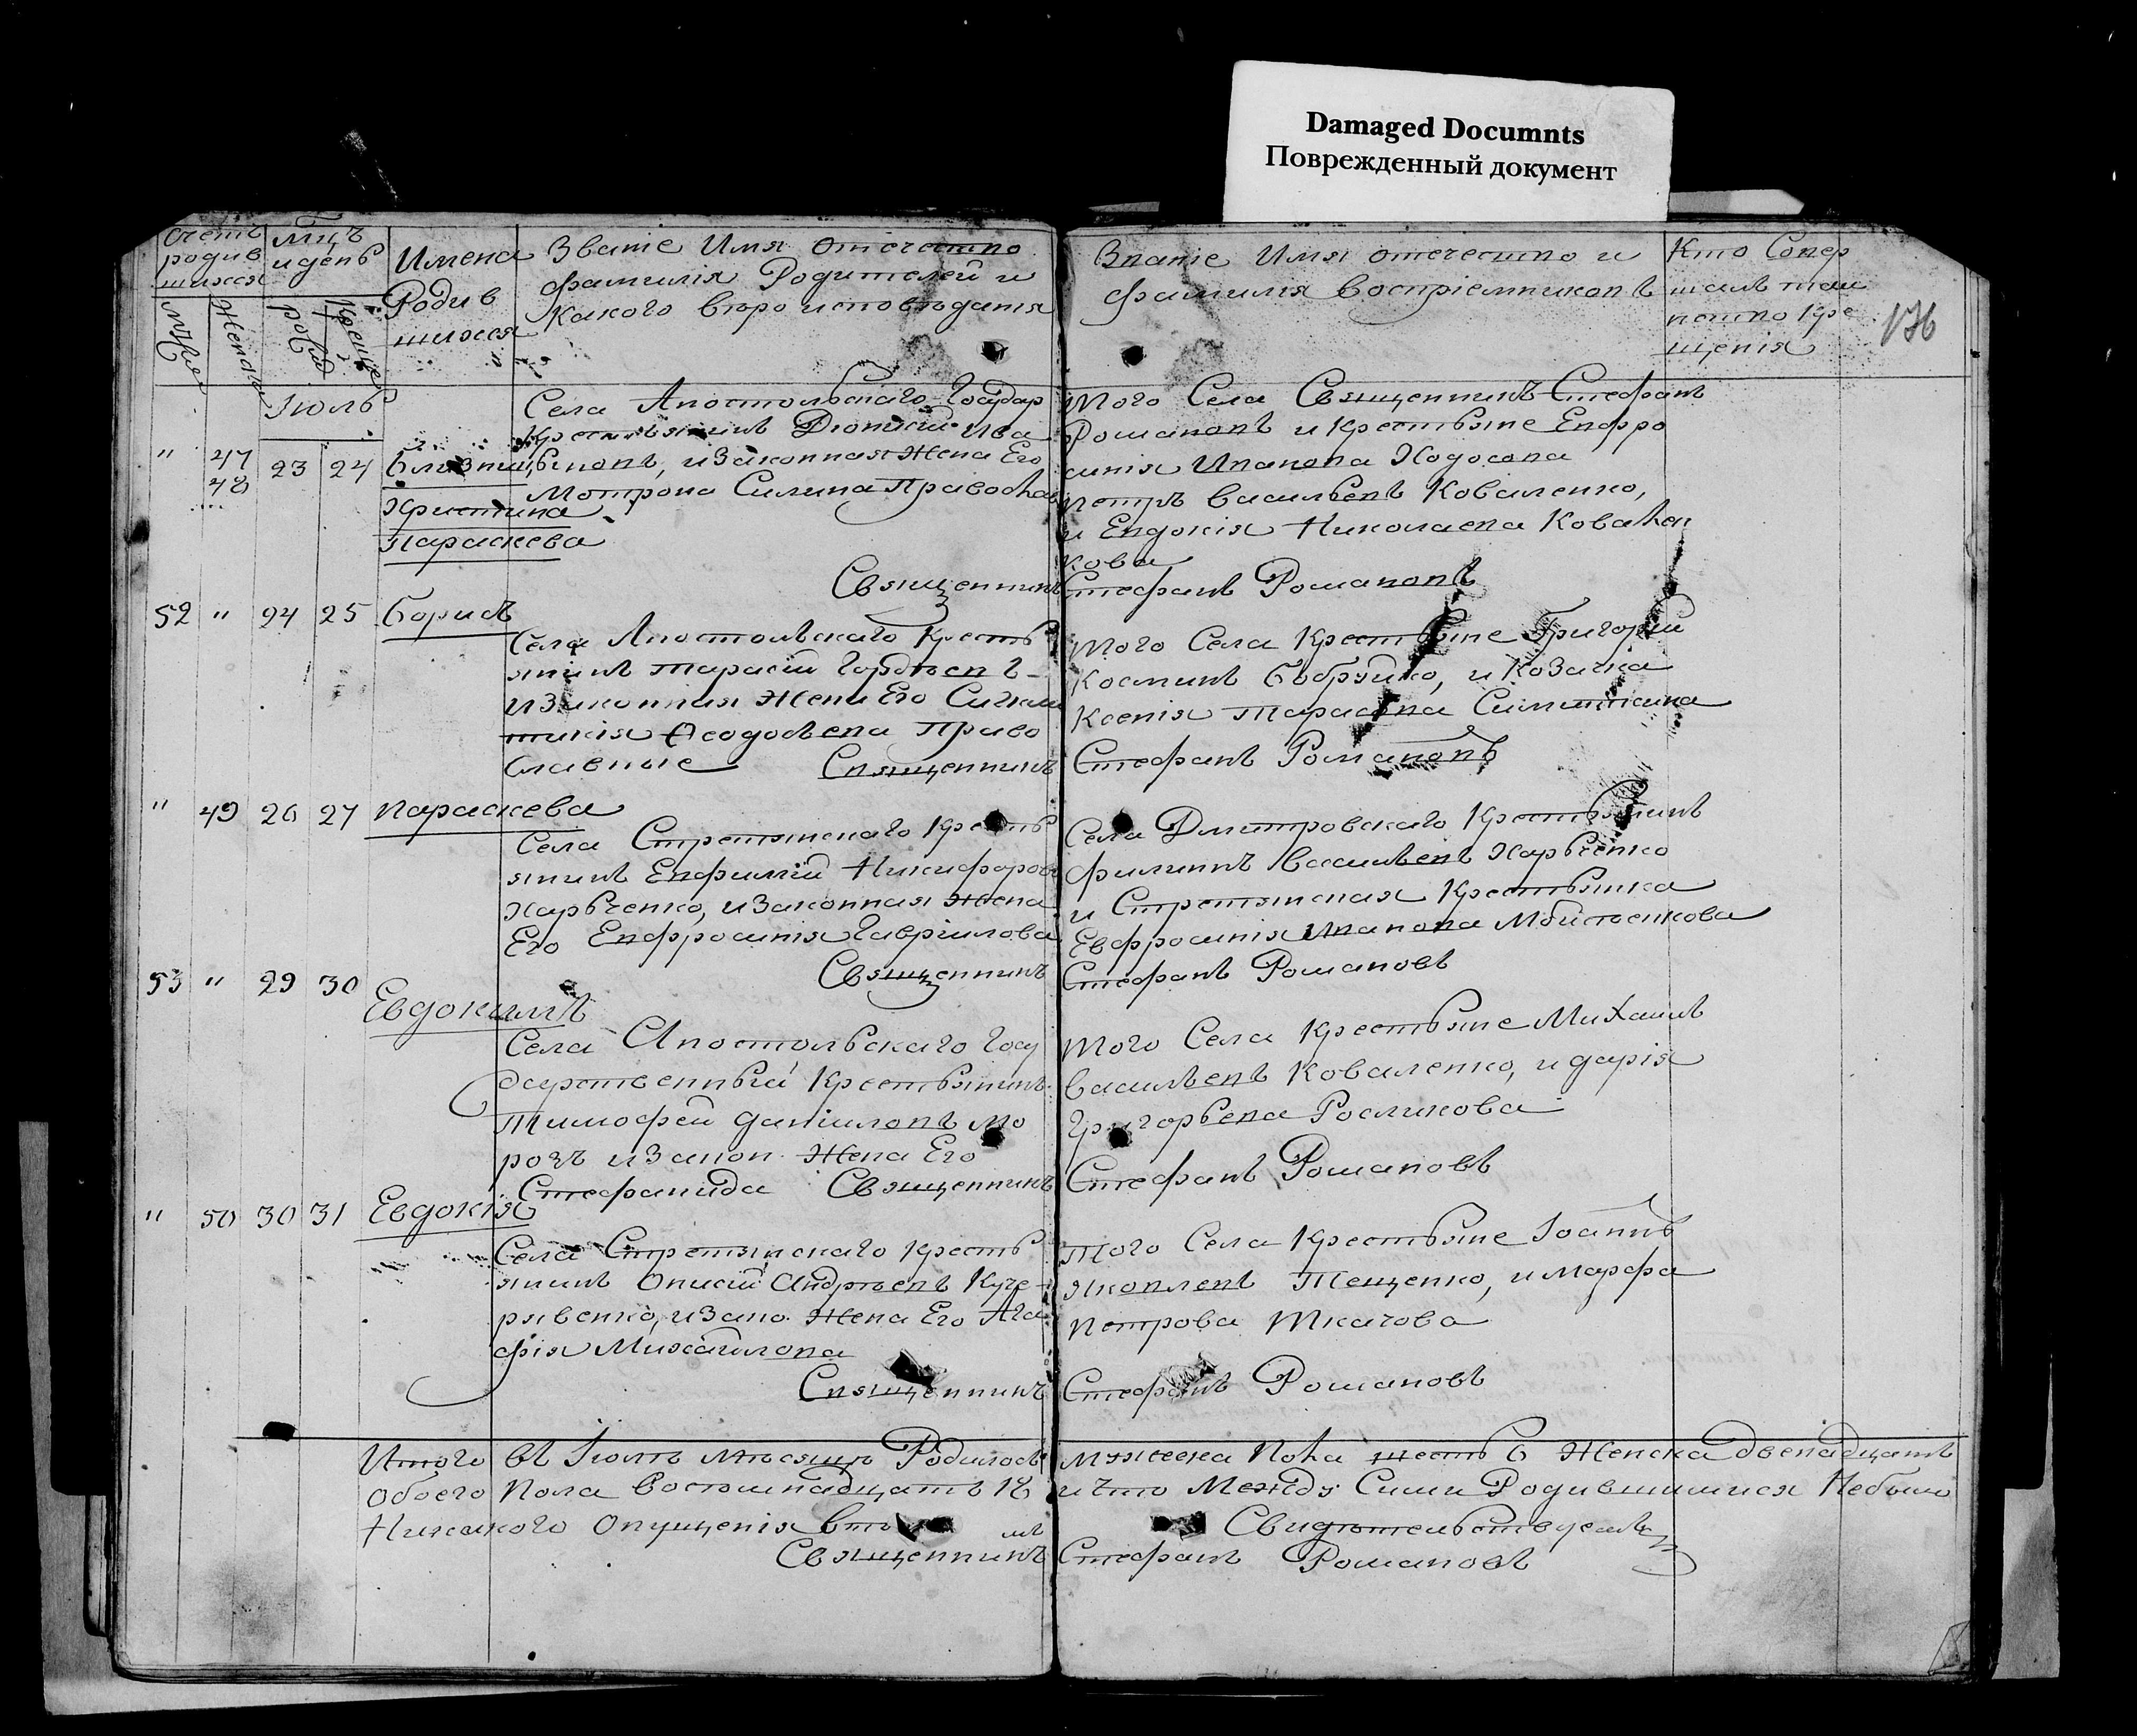 Damaged Documnts
Поврежденный документ
Счетъ родив шихся
Мѣц и день
Имена Родив шихся
Званіе Имя отечество
фамилія Родителей и
какого вѣро исповѣданія
Званіе Имя отечество и
фамилія Воспріемниковъ
Кто Совер
шалъ таи
нство кре
щенія
136
Женска
рожд
креще
Іюль
" 47 48 23 24 Близницы
Христина
Параскева
Села Апостольскаго Государ
Крестьянинъ Діонисій Ива
новъ, и Законная Жена Его
Мотрона Силина Правосла
Того Села Священникъ Стефанъ
Романовъ и Крестьяне Евфро
синія Иванова Ходосова
Петръ Васильевъ Коваленко,
и Евдокія Николаева Ковален
кова
Священникъ Стефанъ Романовъ
52 " 24 25 Борисъ
Села Апостольскаго Кресть
янинъ Тарасій Гордѣевъ
и Законная Жена Его
Ѳеодосѣева Право
славные
Того Села Крестьяне Григорій
Косминъ и Козачка
Ксенія Тарасова
Священникъ Стефанъ Романовъ
" 49 26 27 Параскева
Села Стретянскаго Кресть
янинъ Евфимій Никифоров
Харченко, и Законная Жена
Его Евфросинія Гаврилова
Села Дмитровскаго Крестьянинъ
филиппъ Васильевъ Харченко
и Стретянская Крестьянка
Евфросинія Иванова
Священникъ Стефанъ Романовъ
53 " 29 30
Евдокимъ
Села Апостольскаго Госу
дарственный Крестьянинъ
Тимофей Даниловъ Мо
розъ и Закон Жена Его
Стефанида
Того Села Крестьяне Михаилъ
Васильевъ Коваленко, и дарія
Григорьева Рослikова
Священникъ Стефанъ Романовъ
" 50 30 31 Евдокія
Села Стретянскаго Кресть
янинъ Онисій Андрѣевъ Куче
рявенко, и Зако Жена Его Ага
фія Михаилова
Того Села Крестьяне Іоаннъ
Яковлевъ Тещенко, и Марфа
Петрова Ткачова
Священникъ Стефанъ Романовъ
Итого въ Іюлѣ Мѣсяцѣ Родилось Мужеска Пола шесть 6 Женска Двенадцать
обоего Пола Восемнадцать 18 и что Между Сими Родившимися Небыло
Никакого Опущенія Свидѣтельствуемъ
Священникъ Стефанъ Романовъ